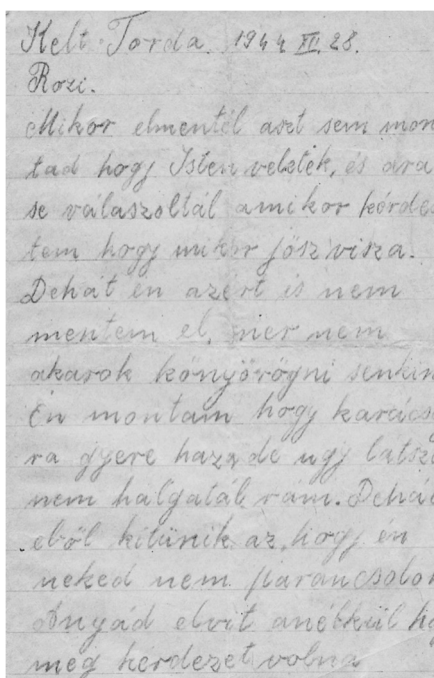 Kelt Torda. 1944 XII. 28.
Rozi.
Mikor elmentél aszt sem mon
tad hogy Isten veletek, és ara
se válaszoltál amikor kérdez
tem hogy mikor jösz visza.
Dehát én azért is nem
mentem el, mer nem
akarok könyörögni senkin
Én montam hogy karács
ra gyere haza, de ugy látsz
nem halgatál rám. Dehá
eből kitünik az, hogy én
neked nem parancsolo
Anyád elvit anélkül ho
meg kérdezet volna